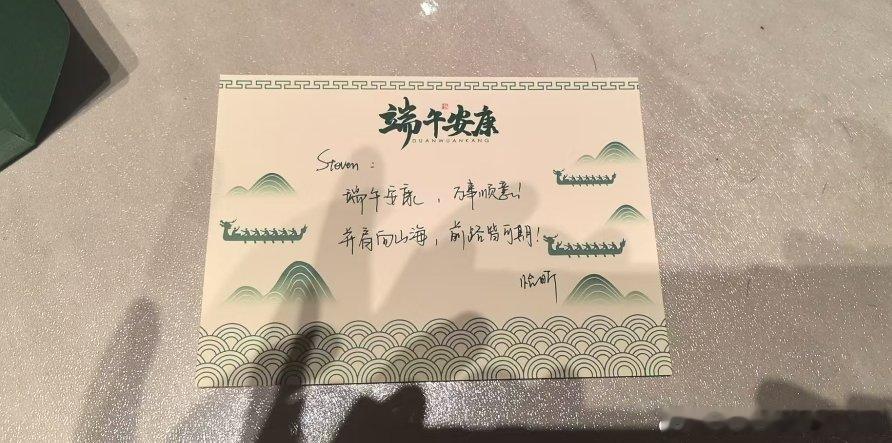 端午安康
DUANWUANKANG
Steven：
端午安康，万事顺意！
并肩向山海，前路皆可期！